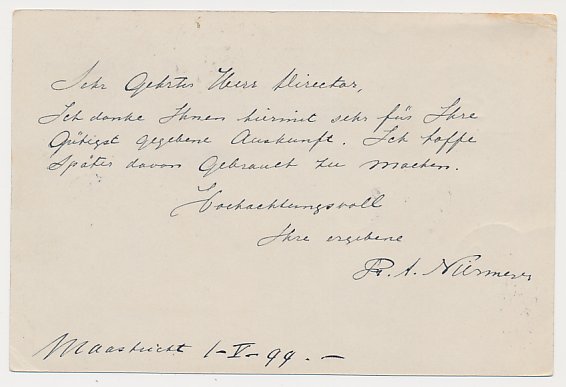 Sehr Gehrter Herr Director,
Ich danke Ihnen hiermit sehr für Ihre
Gütigst gegebene Auskunft. Ich hoffe
Später davon Gebrauch zu machen.
Hochachtungsvoll
Ihre ergebene
A. Niermeyer
Maastricht 1-V-99.-